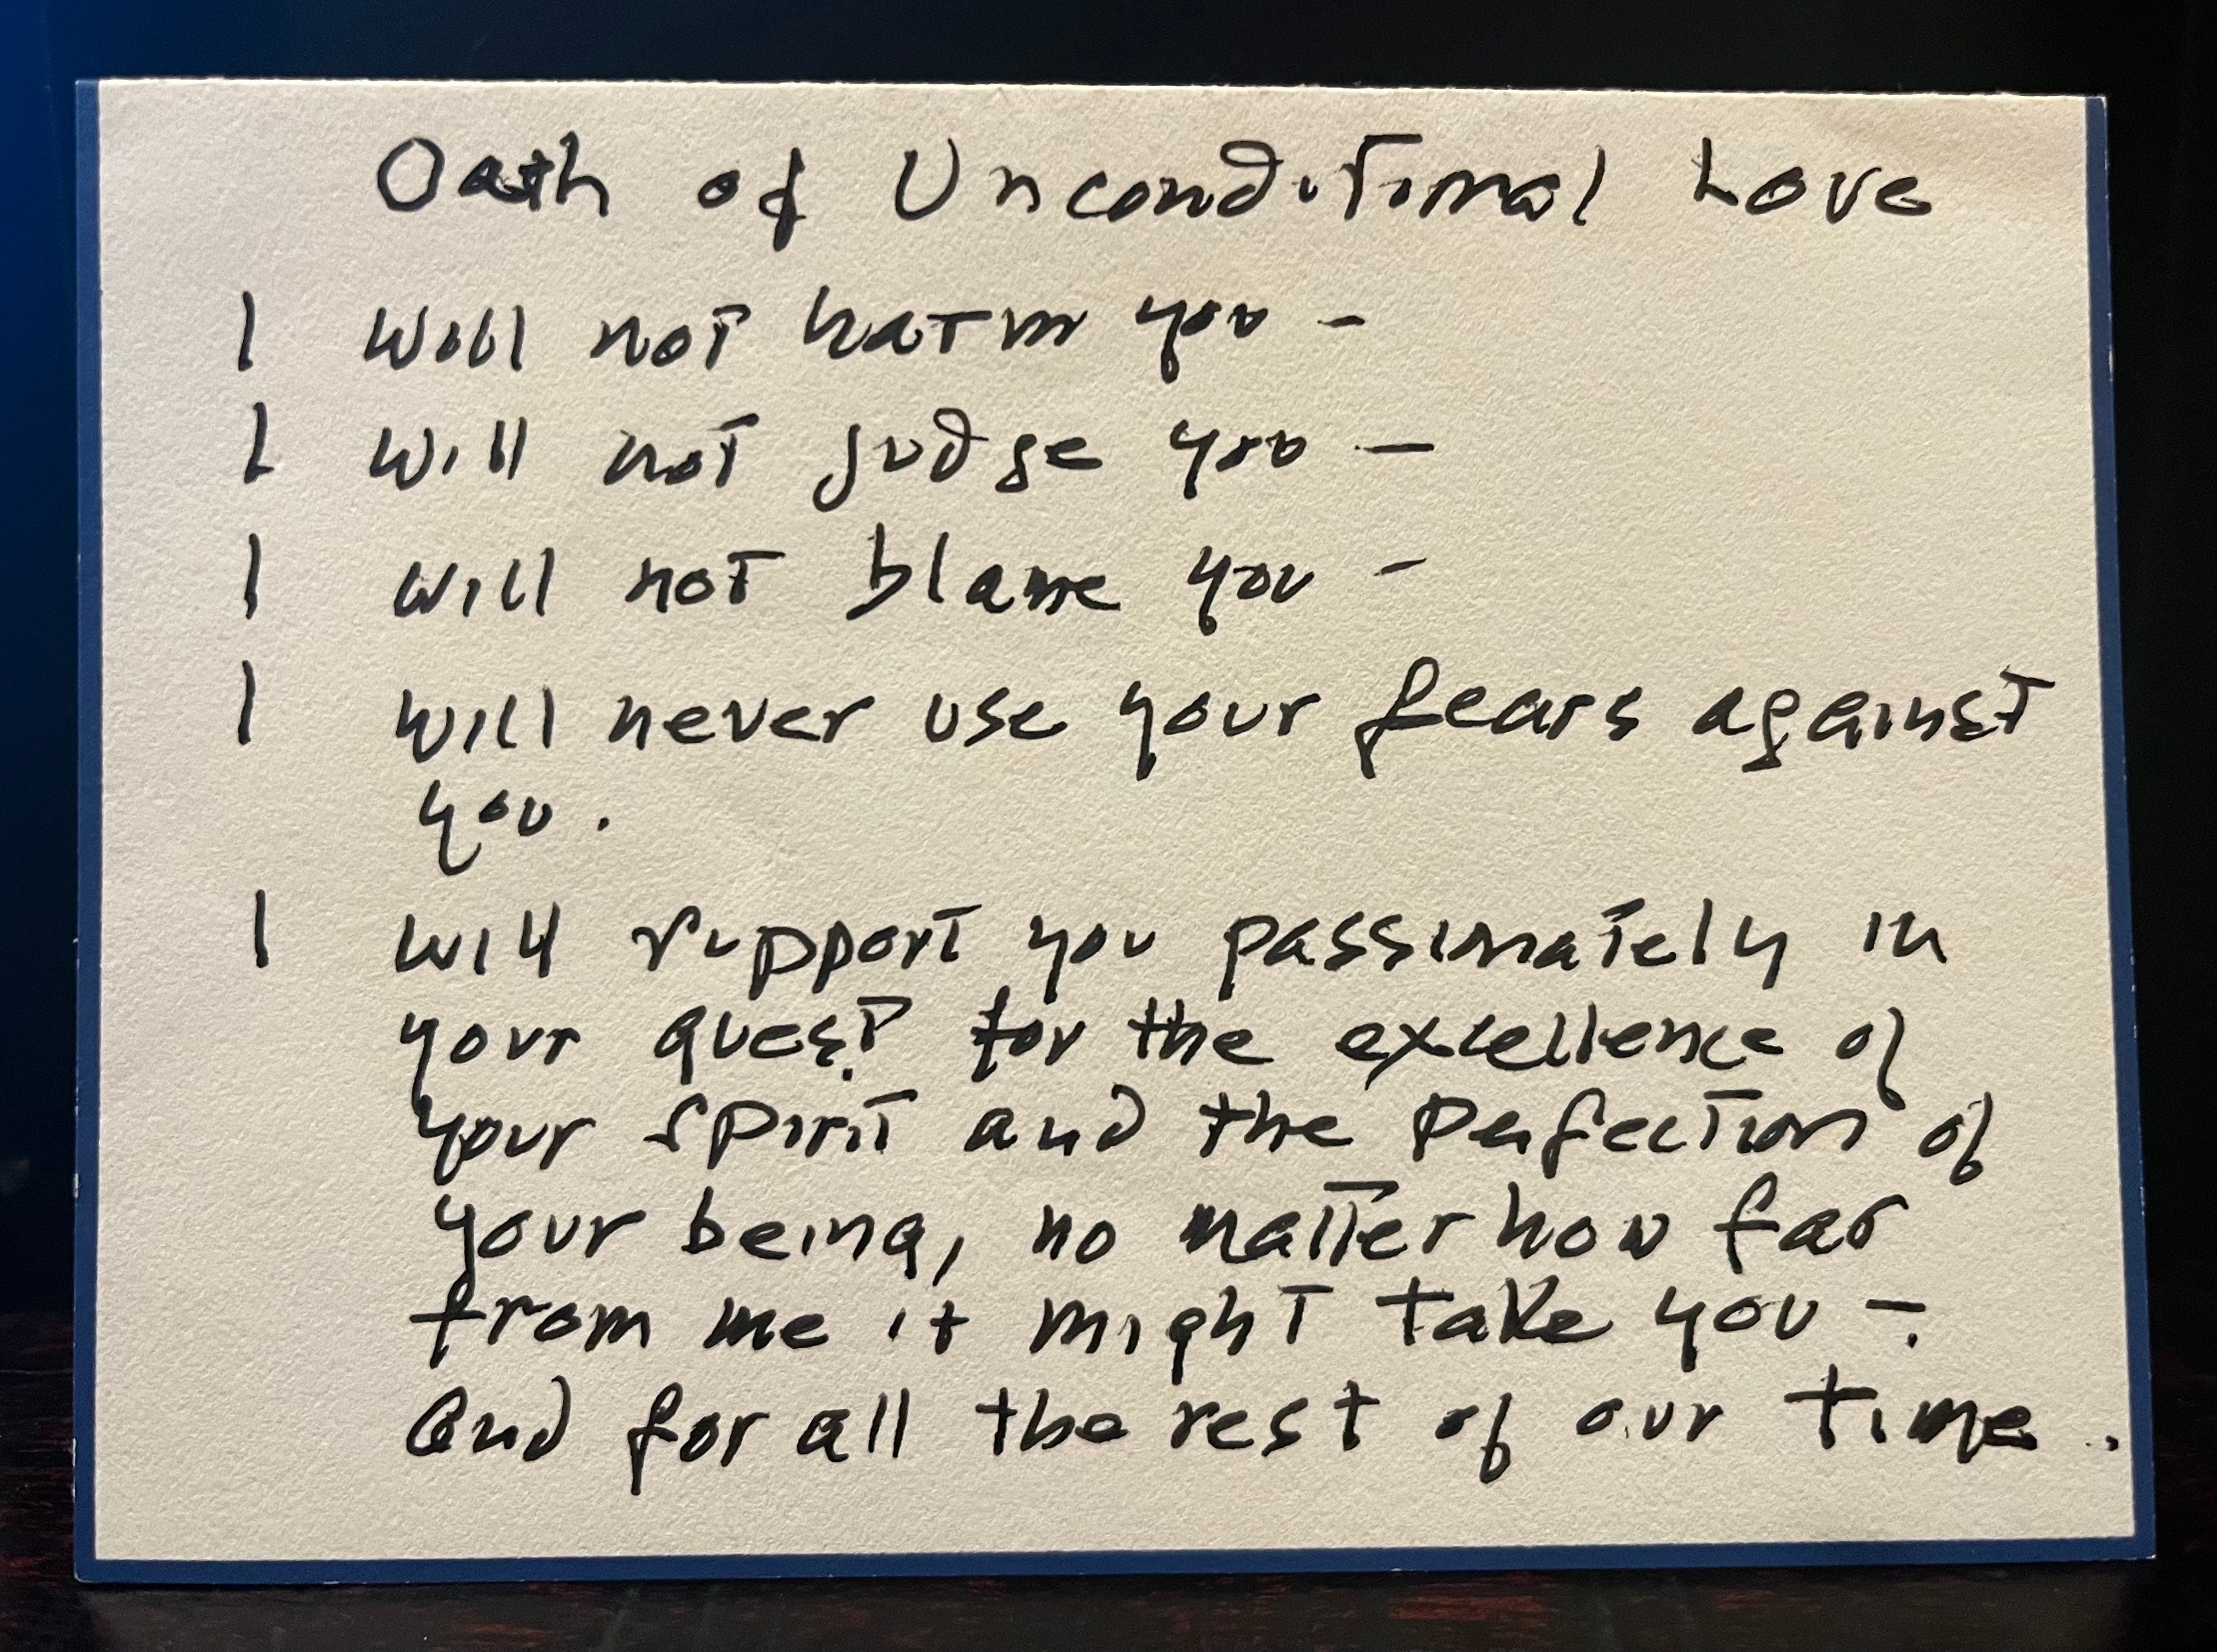 Oath of Unconditional Love
I will not harm you -
I will not judge you -
I will not blame you -
I will never use your fears against
you.
I will support you passionately in
your quest for the excellence of
your spirit and the perfection of
your being, no matter how far
from me it might take you -
and for all the rest of our time.